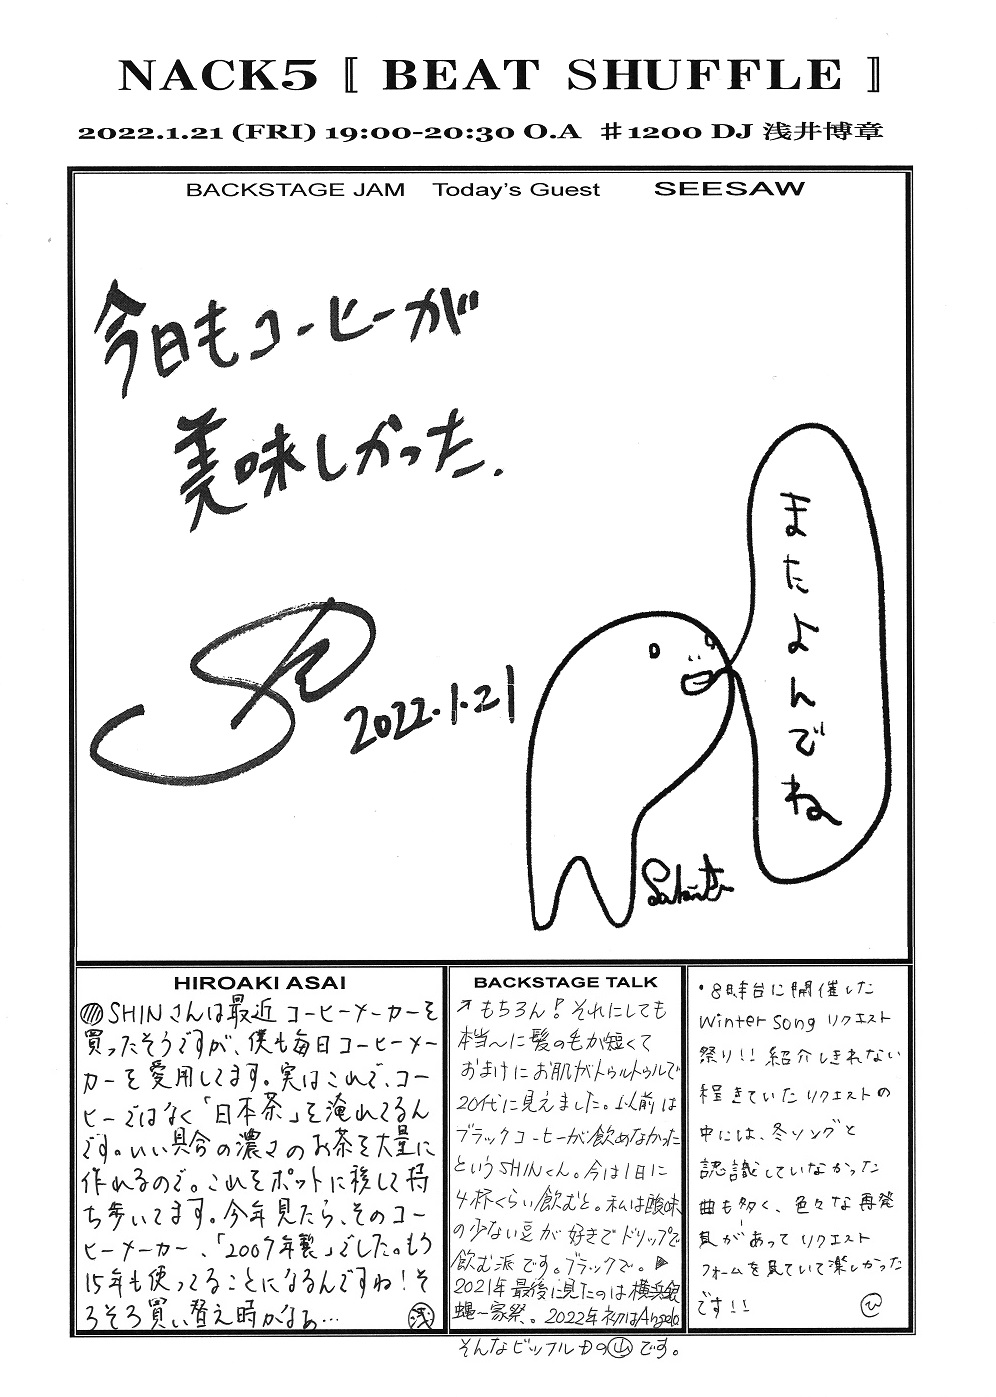 NACK5〚 BEAT SHUFFLE 〛
2022.1.21 (FRI) 19:00-20:30 O.A ♯1200 DJ 浅井博章
BACKSTAGE JAM Today's Guest SEESAW
今日もコーヒーが
美味しかった.
2022.1.21
またよんでね
HIROAKI ASAI
SHINさんは最近コーヒーメーカーを
買ったそうですが、僕も毎日コーヒーメー
カーを愛用してます。実はこれで、コー
ヒーではなく「日本茶」を淹れてるん
です。いい具合の濃さのお茶を大量に
作れるので。これをポットに移して持
ち歩いてます。今年見たら、そのコー
ヒーメーカー、「2007年製」でした。もう
15年も使ってることになるんですね！そ
ろそろ買い替え時かなぁ… 浅
BACKSTAGE TALK
↗もちろん！それにしても
本当〜に髪の毛が短くて
おまけにお肌がトゥルトゥルで
20代に見えました。以前は
ブラックコーヒーが飲めなかった
というSHINくん。今は1日に
4杯くらい飲むと。私は酸味
の少ない豆が好きでドリップで
飲む派です。ブラックで。▶
2021年最後に見たのは横浜銀
蝿一家祭、。2022年初はAngelo
そんなビッフルカの山です。
・8時台に開催した
Winter song リクエスト
祭り！！紹介しきれない
程きていたリクエストの
中には、冬ソングと
認識していなかった
曲も多く、色々な再発
見があってリクエスト
フォームを見ていて楽しかった
です！！ ひ